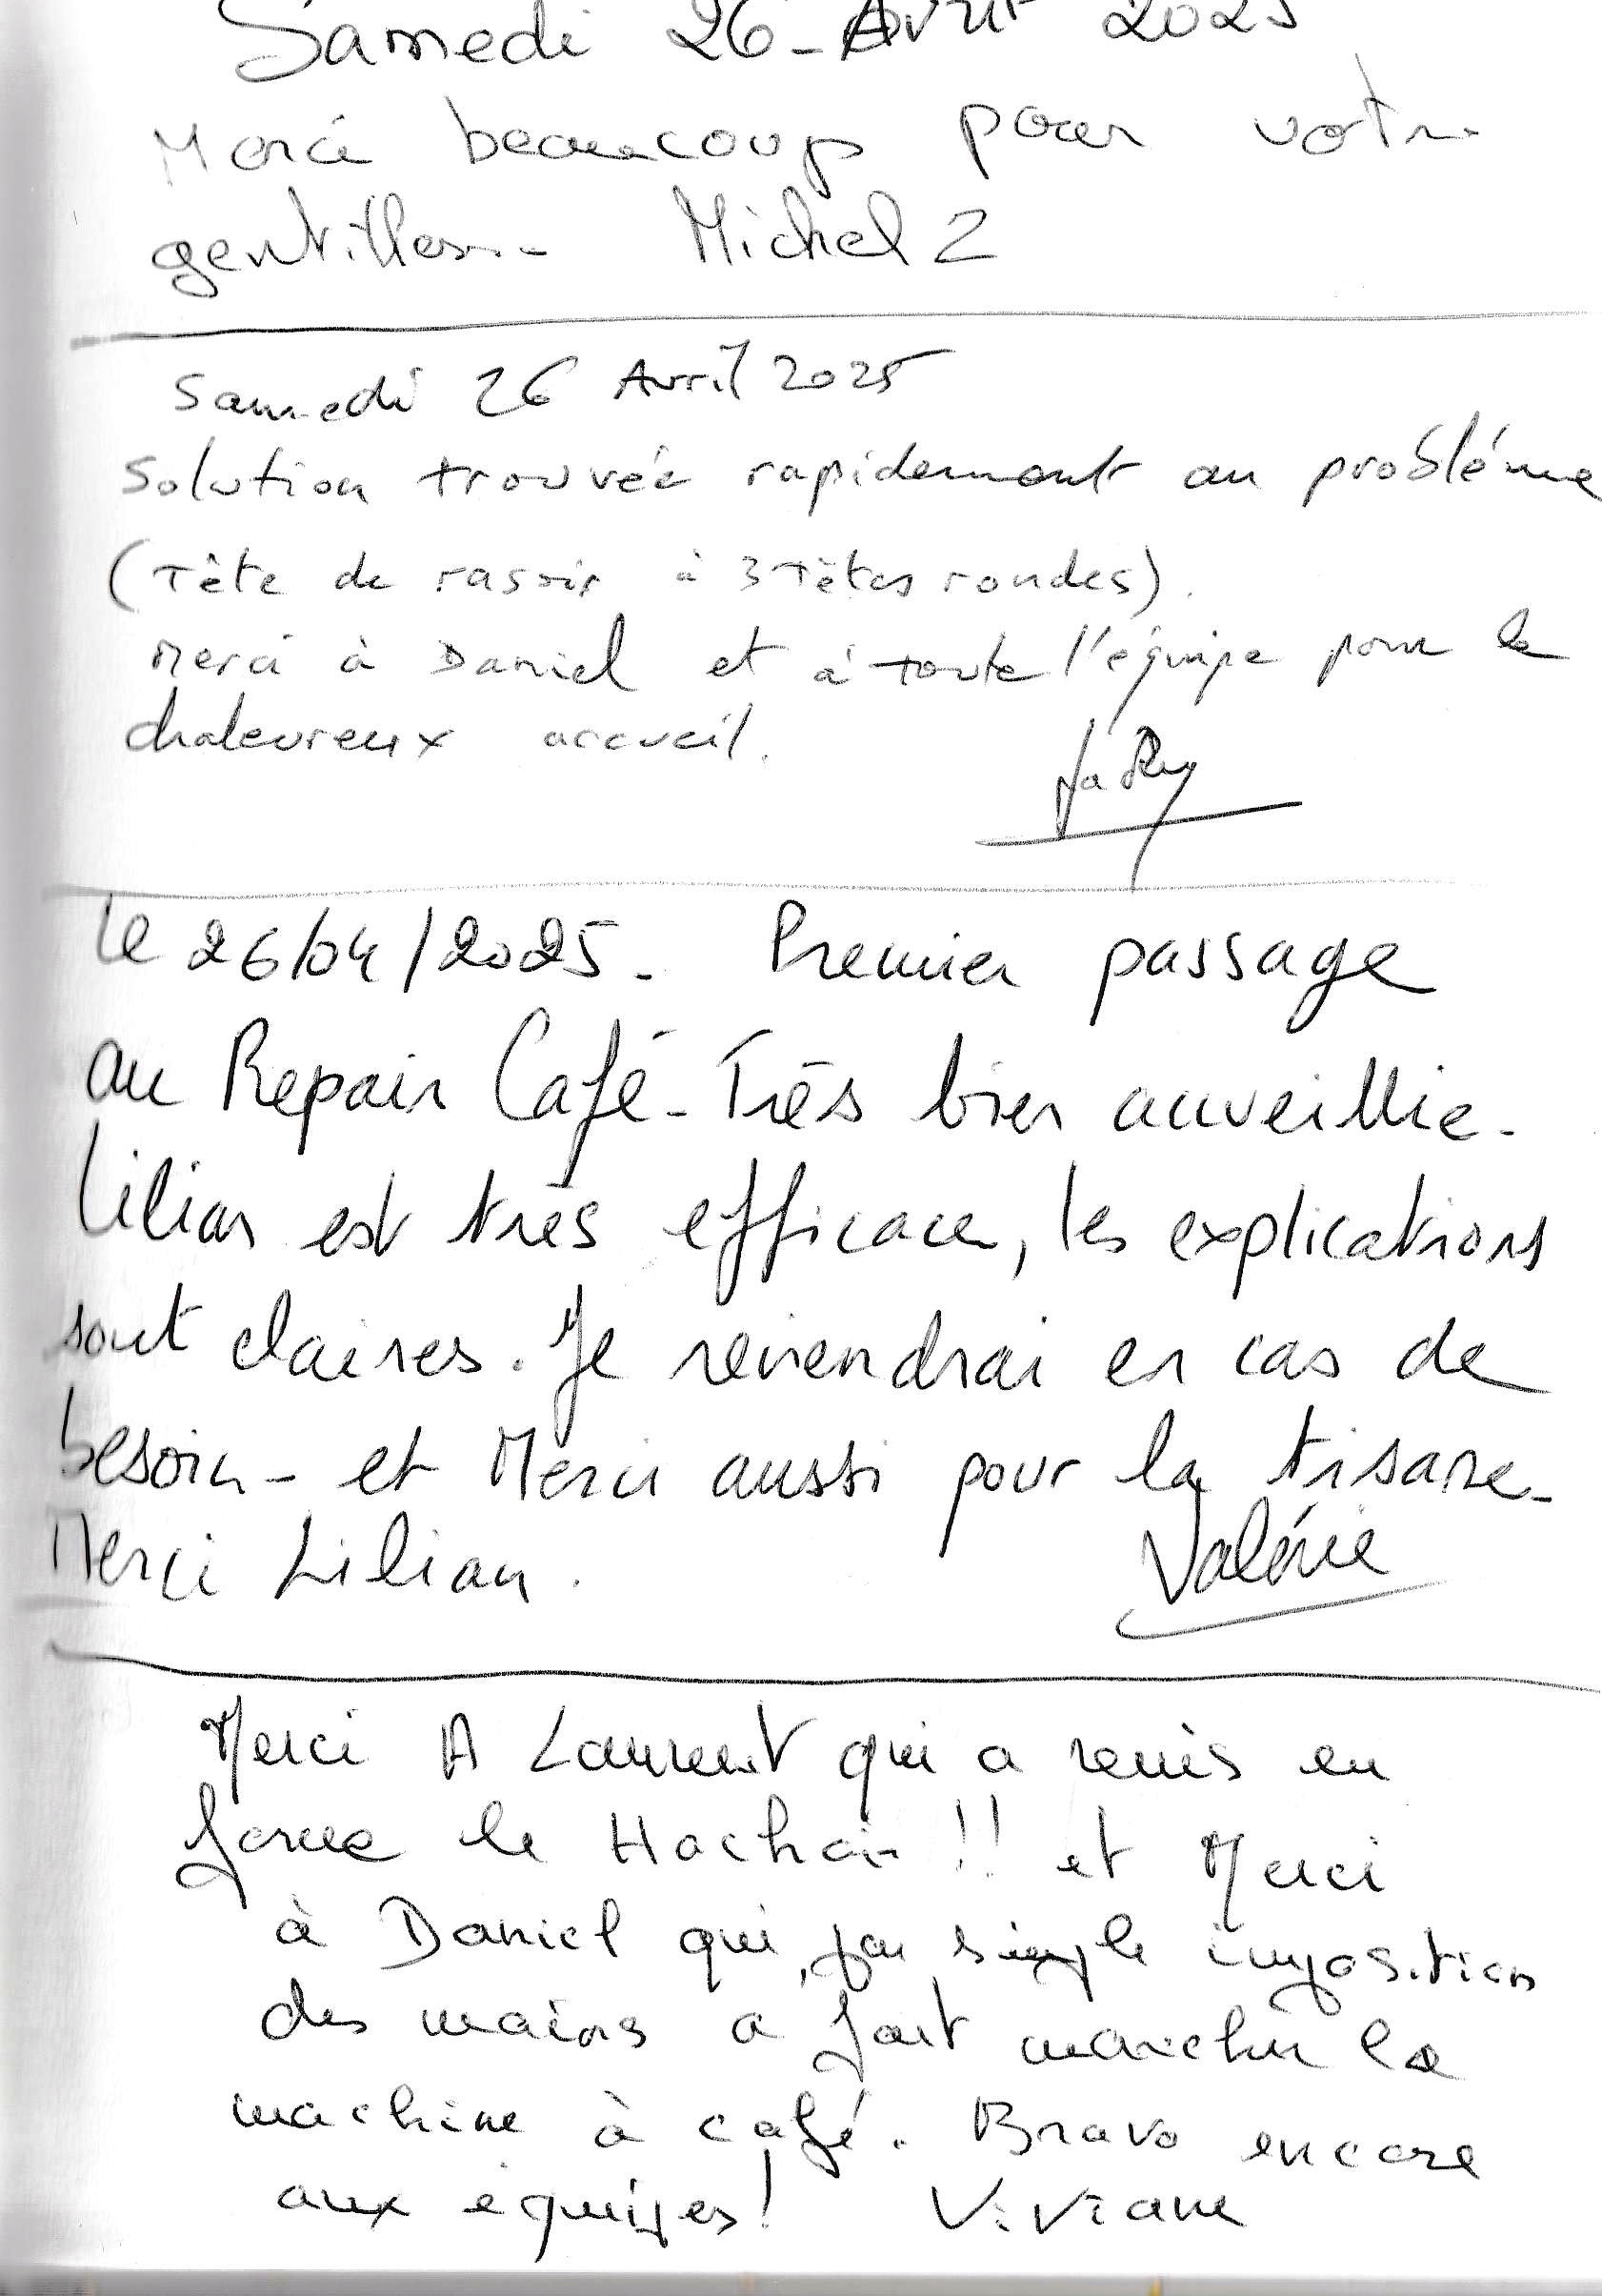 Samedi 26 - Avril 2025
Merci beaucoup pour votre
gentillesse - Michel Z
Samedi 26 Avril 2025
Solution trouvée rapidement au probléme
(Tête de rasoir à 3 têtes rondes).
Merci à Daniel et à toute l'équipe pour le
chaleureux accueil.
Le 26/04/2025. Premier passage
au Repair Café - Très bien accueillie.
Lilian est très efficace, les explications
sont claires. Je reviendrai en cas de
besoin - et Merci aussi pour la tisane -
Merci Lilian.
Valérie
Merci A Laurent qui a remis en
forme le Hachoir !! et Merci
à Daniel qui, par simple imposition
des mains a fait marcher la
machine à café. Bravo encore
aux équipes! Viviane